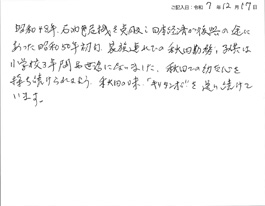 ご記入日：令和 7 年 12 月 17 日
昭和48年、石油危機を契機に日本経済が復興の途に
あった昭和50年初旬、家族連れでの秋田勤務、子供は
小学校3年 でお世話になりました。秋田での幼な心を
持ち続けられるよう、秋田の味、"キリタンポ"を追い続けて
います。